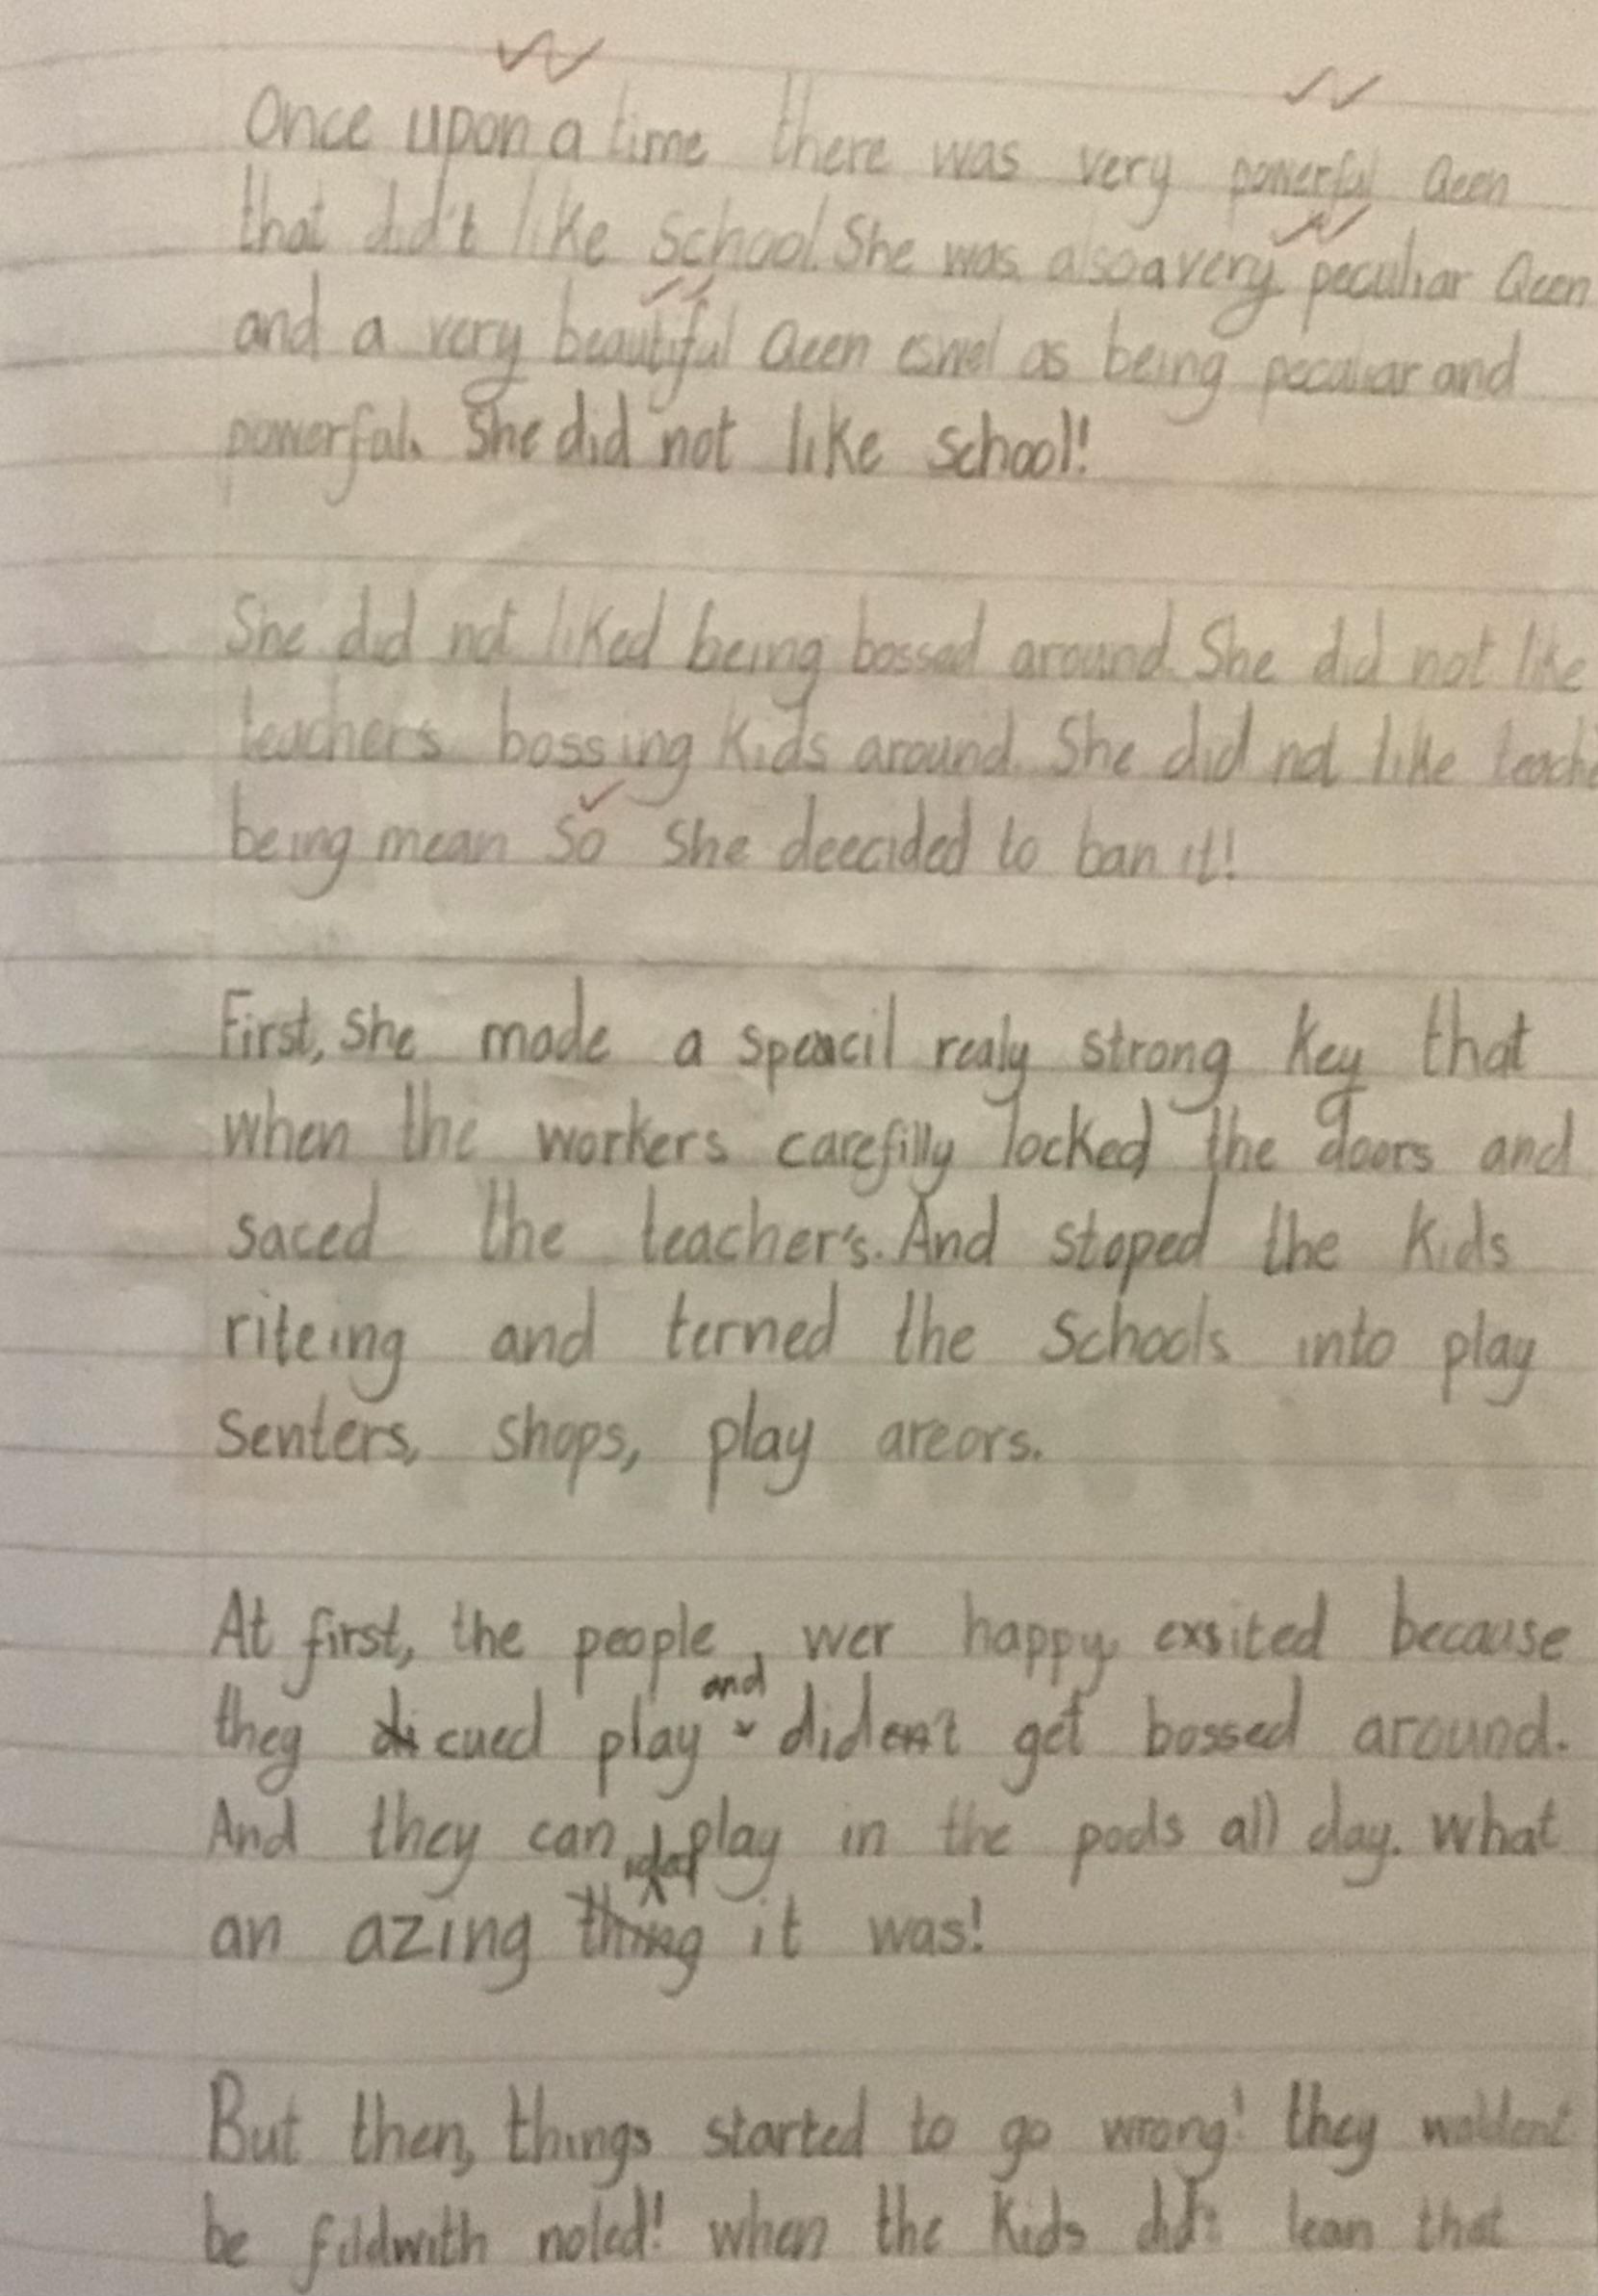 Once upon a time there was very powerful Qeen
that did't like School. She was also a very peculiar Qeen
and a very beautiful Qeen eswel as being peculiar and
powerful. She did not like School!
She did not liked being bossed around. She did not like
teacher's bossing Kids around. She did not like
being mean So She deecided to ban it!
First, She made a spencil realy strong Key that
when the workers carefilly locked the doors and
saced the teacher's. And stoped the Kids
riteing and terned the Schools into play
Senters, shops, play areors.
At first, the people, wer happy exsited because
they cued play and diden't get bossed around.
And they can play in the pods all day. What
an azing idea it was!
But then, things started to go wrong! they woldent
be fildwith noled! when the Kids did't lean that